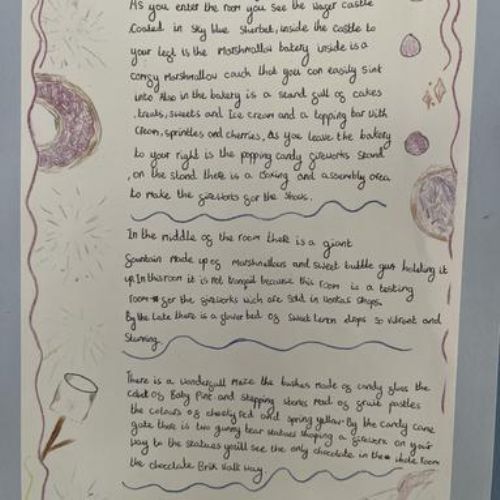 As you enter the room you see the Wager Castle
Coated in Sky blue Sherbet, inside the Castle to
your legt is the Marshmallow bakery inside is a
comgy Marshmallow couch that you can easily sint
into. Also in the bakery is a stand gull og cakes
, treats, sweets and Ice cream and a topping bar with
Cream, sprinkles and cherries, As you leave the bakery
to your right is the popping candy gireworks Stand
, on the stand there is a boxing and assembly area
to make the gireworks gor the Shows.
In the middle og the room there is a giant
gountain Made up og marshmallows and sweet bubble gum holding it
up. In this room it is not tranquil because this room is a testing
room gor the gireworks wich are Sold in Wonkas Shops.
By the Lake there is a glower bed og Sweet Lemon drops so vibrant and
Stunning.
There is a wondergull maze the bushes Made og candy gloss the
colour og Baby Pink and Stepping Stones Mad og gruit pastles
the colours og cheery red and Spring yellow. By the candy cane
gate there is two gummy bear statues Shaping a girework on your
way to the statues you'll see the only chocolate in the whole room
the chocolate Brik Walk Way.